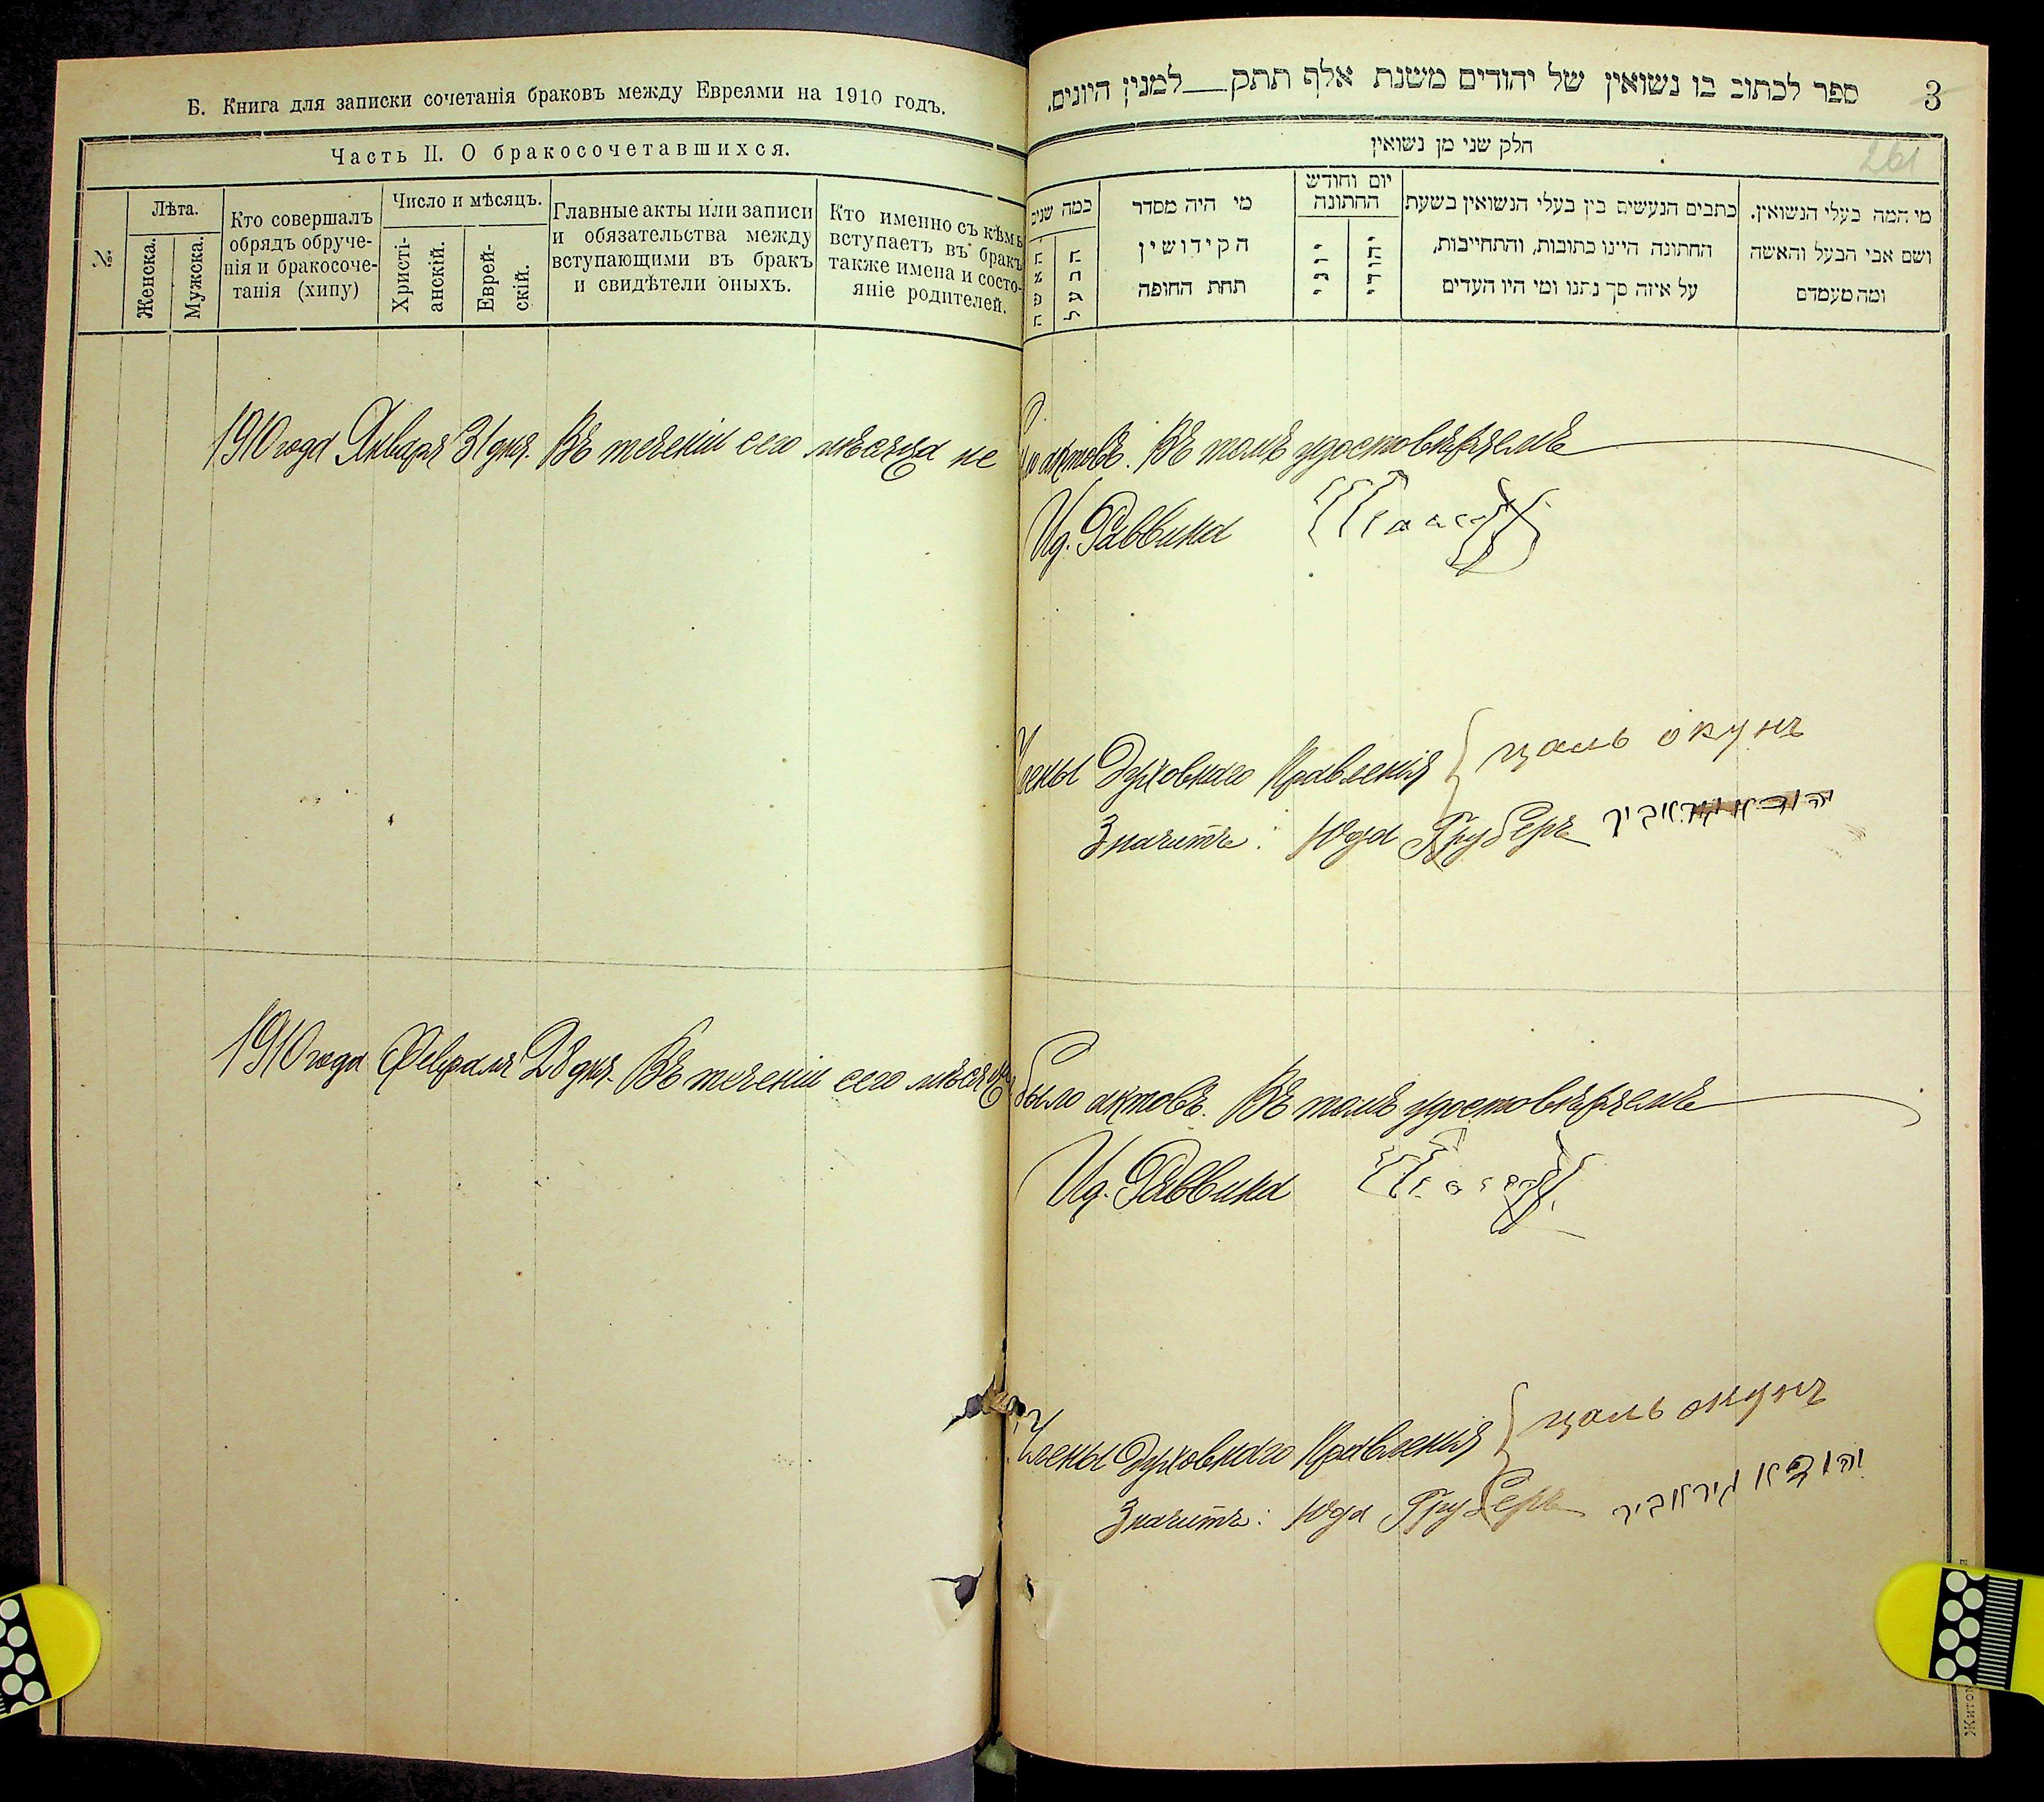 Б. Книга для записки сочетанія браковъ между Евреями на 1910 годъ.
Часть II. О бракосочетавшихся.
№
Лѣта.
Женска.
Мужска.
Кто совершалъ
обрядъ обруче-
нія и бракосоче-
танія (хипу)
Число и мѣсяцъ.
Христі-
анскій.
Еврей-
скій.
Главные акты или записи
и обязательства между
вступающими въ бракъ
и свидѣтели оныхъ.
Кто именно съ кѣмъ
вступаетъ въ бракъ
также имена и состо-
яніе родителей.
ספר לכתוב בו נשואין של יהודים משנת אלף תתק__למנין היונים.
3
261
חלק שני מן נשואין
מי המה בעלי הנשואין.
ושם אבי הבעל והאשה
ומה מעמדם
כתבים הנעשים בין בעלי הנשואין בשעת
החתונה היינו כתובות, והתחייבות,
על איזה סך נתנו ומי היו העדים
יום וחודש
החתונה
יהודי
יוני
מי היה מסדר
הקידושין
תחת החופה
כמה שנים
הבעל
האשה
1910 года Января 31 дня. Въ теченіи сего мѣсяца не
было актовъ. Въ томъ удостовѣряемъ
Ид. Раввина
Члены Духовнаго Правленія { цаль окунъ
Значитъ: Юда Груберъ
1910 года Февраля 28 дня. Въ теченіи сего мѣсяца
было актовъ. Въ томъ удостовѣряемъ
Ид. Раввина
Члены Духовнаго Правленія { цаль окунъ
Значитъ: Юда Груберъ
Житом